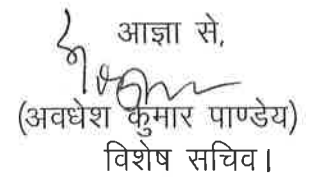 आज्ञा से,
(अवधेश कुमार पाण्डेय)
विशेष सचिव।